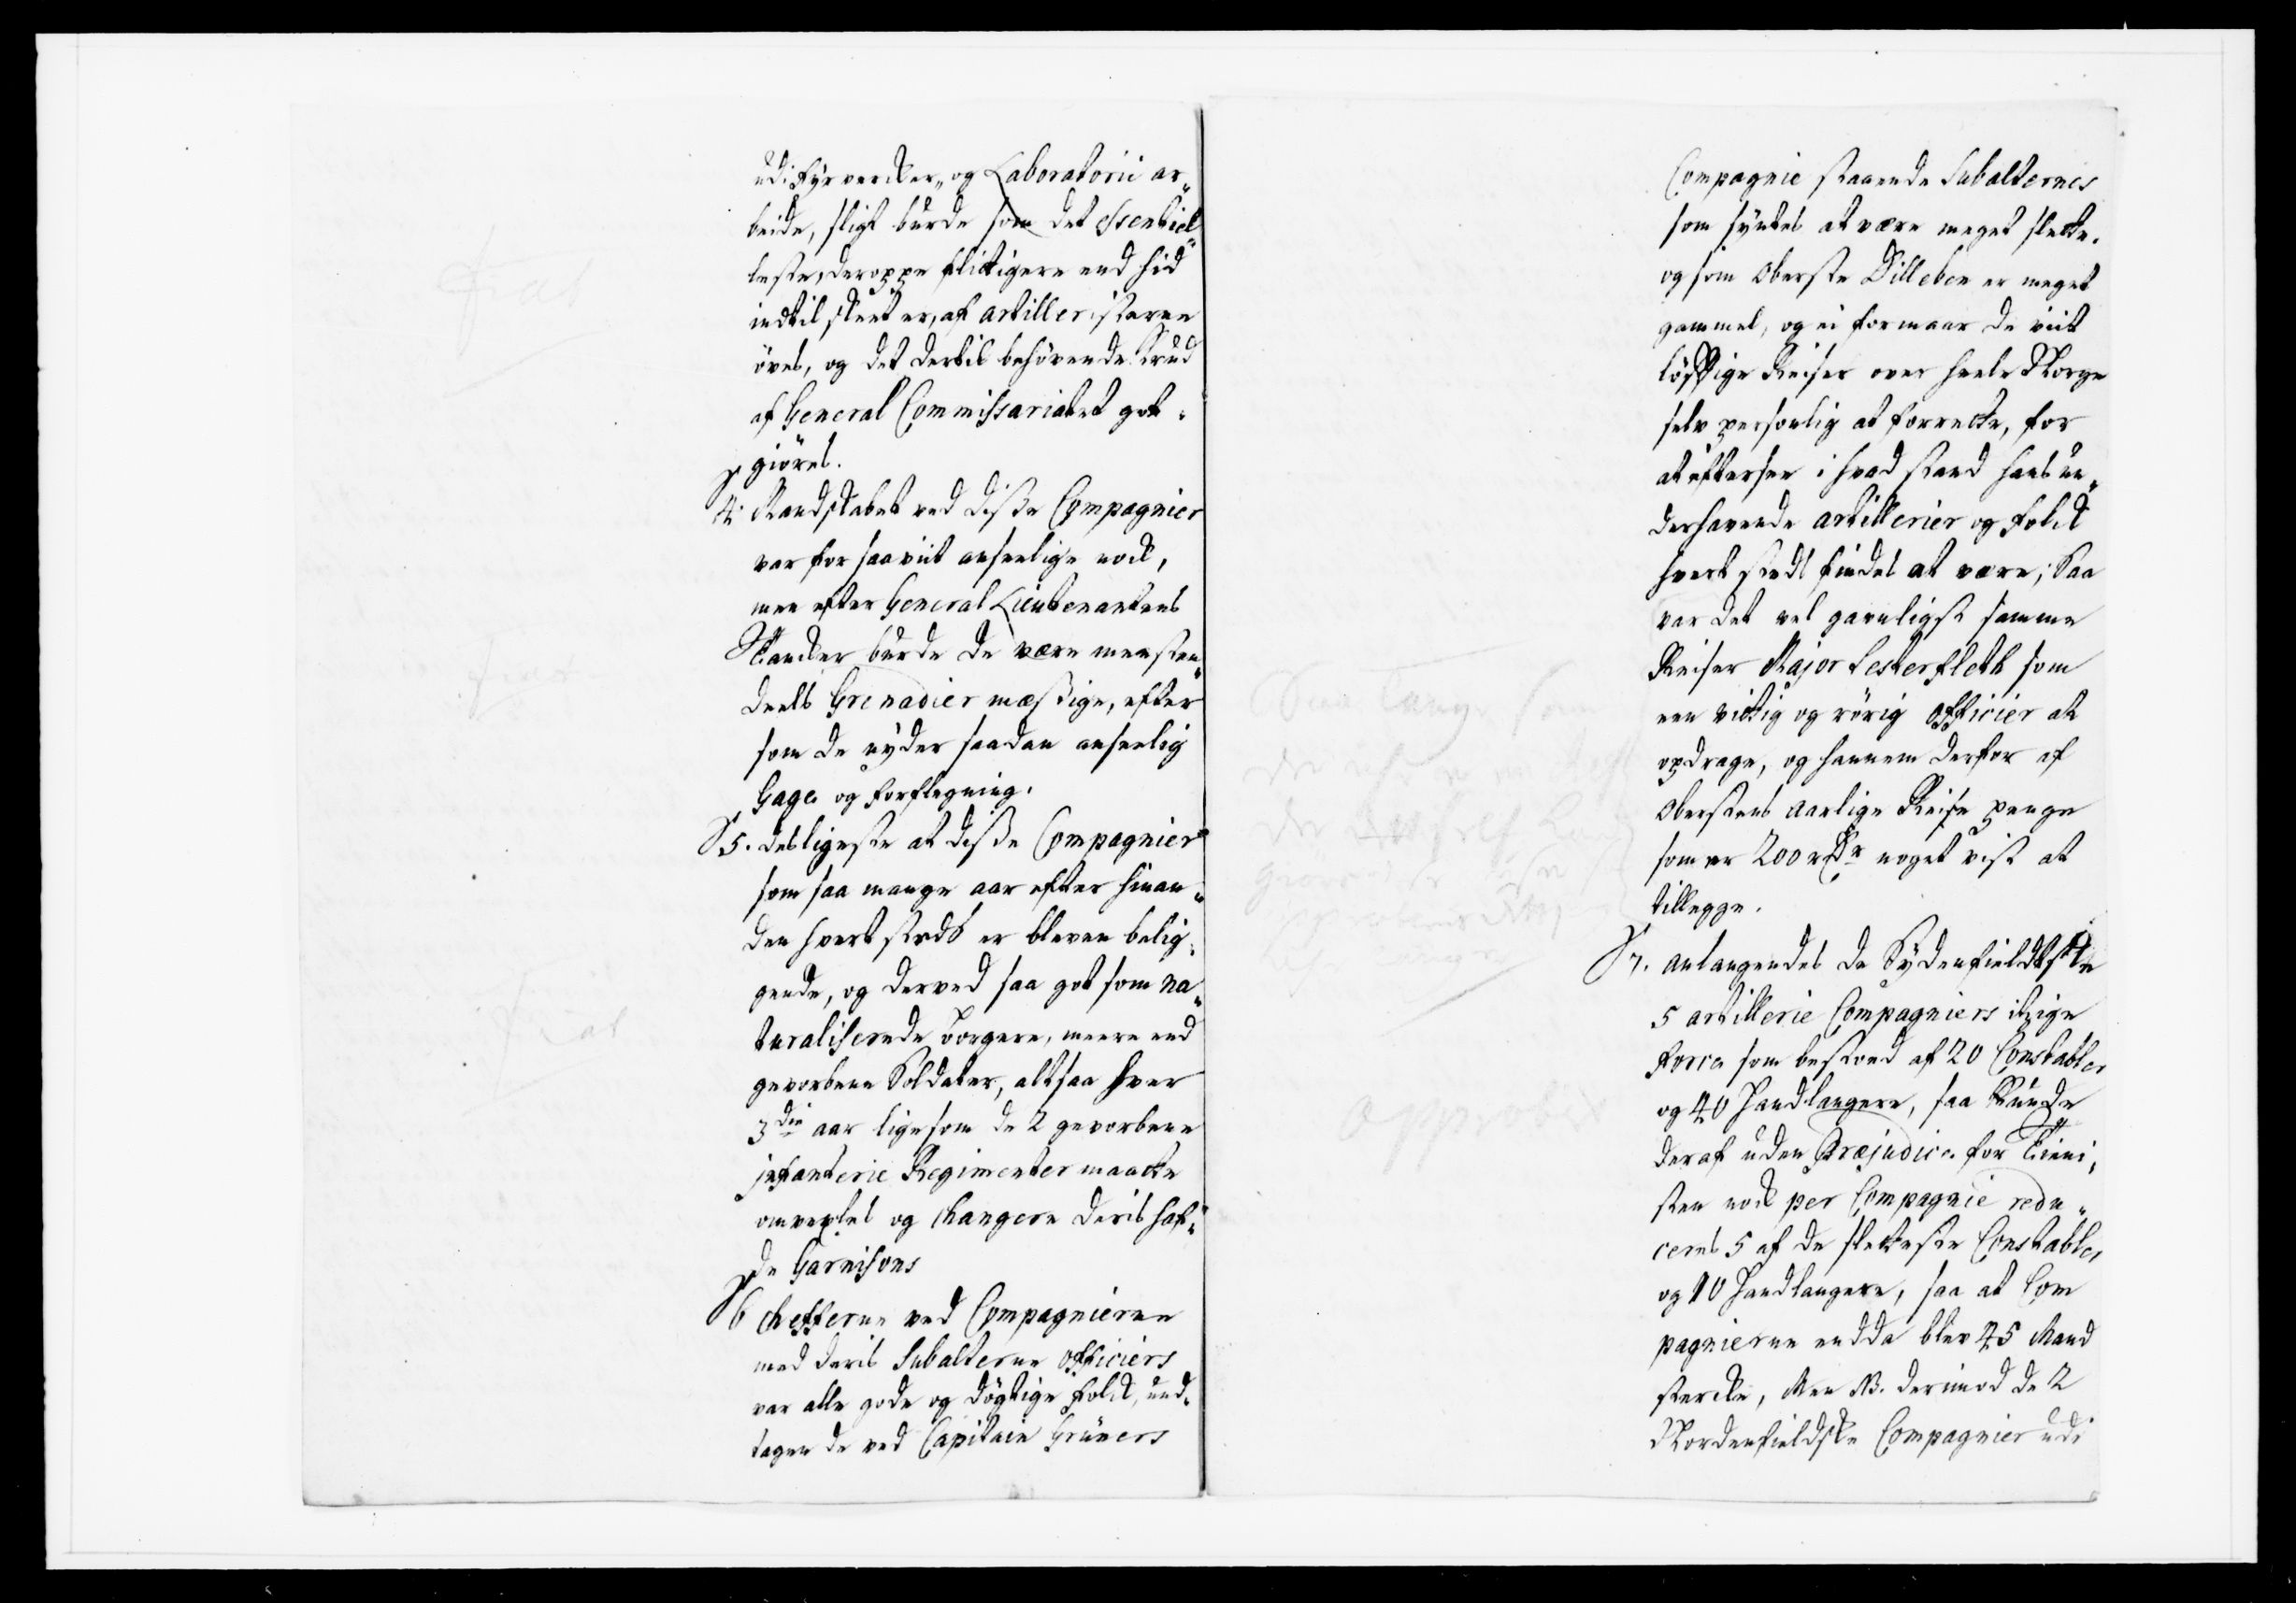 udi Fyrverker- og Laboratorii ar-
beide, sligt burde som det Essentiel-
leste, deroppe flittigere end hid
indtil skeet er, af artilleristerne
öves, og det dertil behövende Krud
af General Commissariatet got-
giöres.
§ 4. Mandskabet ved disse Compagnier
var for saaviit anseelige nock,
men efter General Lieutenantens
Tancker burde de være meesten-
deels Grenadier mæssige, efter
som de nyder saadan anseelig
Gage og forflegning.
§ 5. desligeste at disse Compagnier
som saa mange aar efter hinan-
den hvert stedß er bleven belig-
gende, og derved saa got som na-
turaliserede borgere, meere end
gevorbene Soldater, altsaa hver
3die aar ligesom de 2 gevorbene
infanterie Regimenter maatte
omvexles og changere deris haf-
de Garnisons
§ 6 Chefferne ved Compagnierne
med deris Subalterne officiers
var alle gode og dögtige folck, und-
tagen de ved Capitain Grüners
Fiat
Fiat
Fiat
Compagnie staaende Subalternes
som syntes at være meget slette.
og som Oberste Dilleben er meget
gammel, og ei formaar de viit
löftige Reiser over heele Norge
selv personlig at forrette, for
at eftersee i hvad stand hans un-
derhavende artillerier og folck
hvert steds findes at være; Saa
var det vel gavnligst samme
Reiser Major Lesterfleth som
een vittig og rörig officier at
opdrage, og hannem derfor af
Oberstens aarlige Reise penge
som er 200 rdr noget vist at
tillegge.
§ 7. anlangendes de Sydenfieldske
5 artillerie Compagniers itzige
force som bestoed af 20 Constabler
og 40 Handlangere, saa kunde
deraf uden Præjudice for Tieni-
sten nock per Compagnie redu-
ceres 5 af de sletteste Constabler
og 10 Handlangere, saa at Com
pagnierne endda blev 45 Mand
stercke, Men NB. derimod de 2
Nordenfieldske Compagnier udi
lange
approb